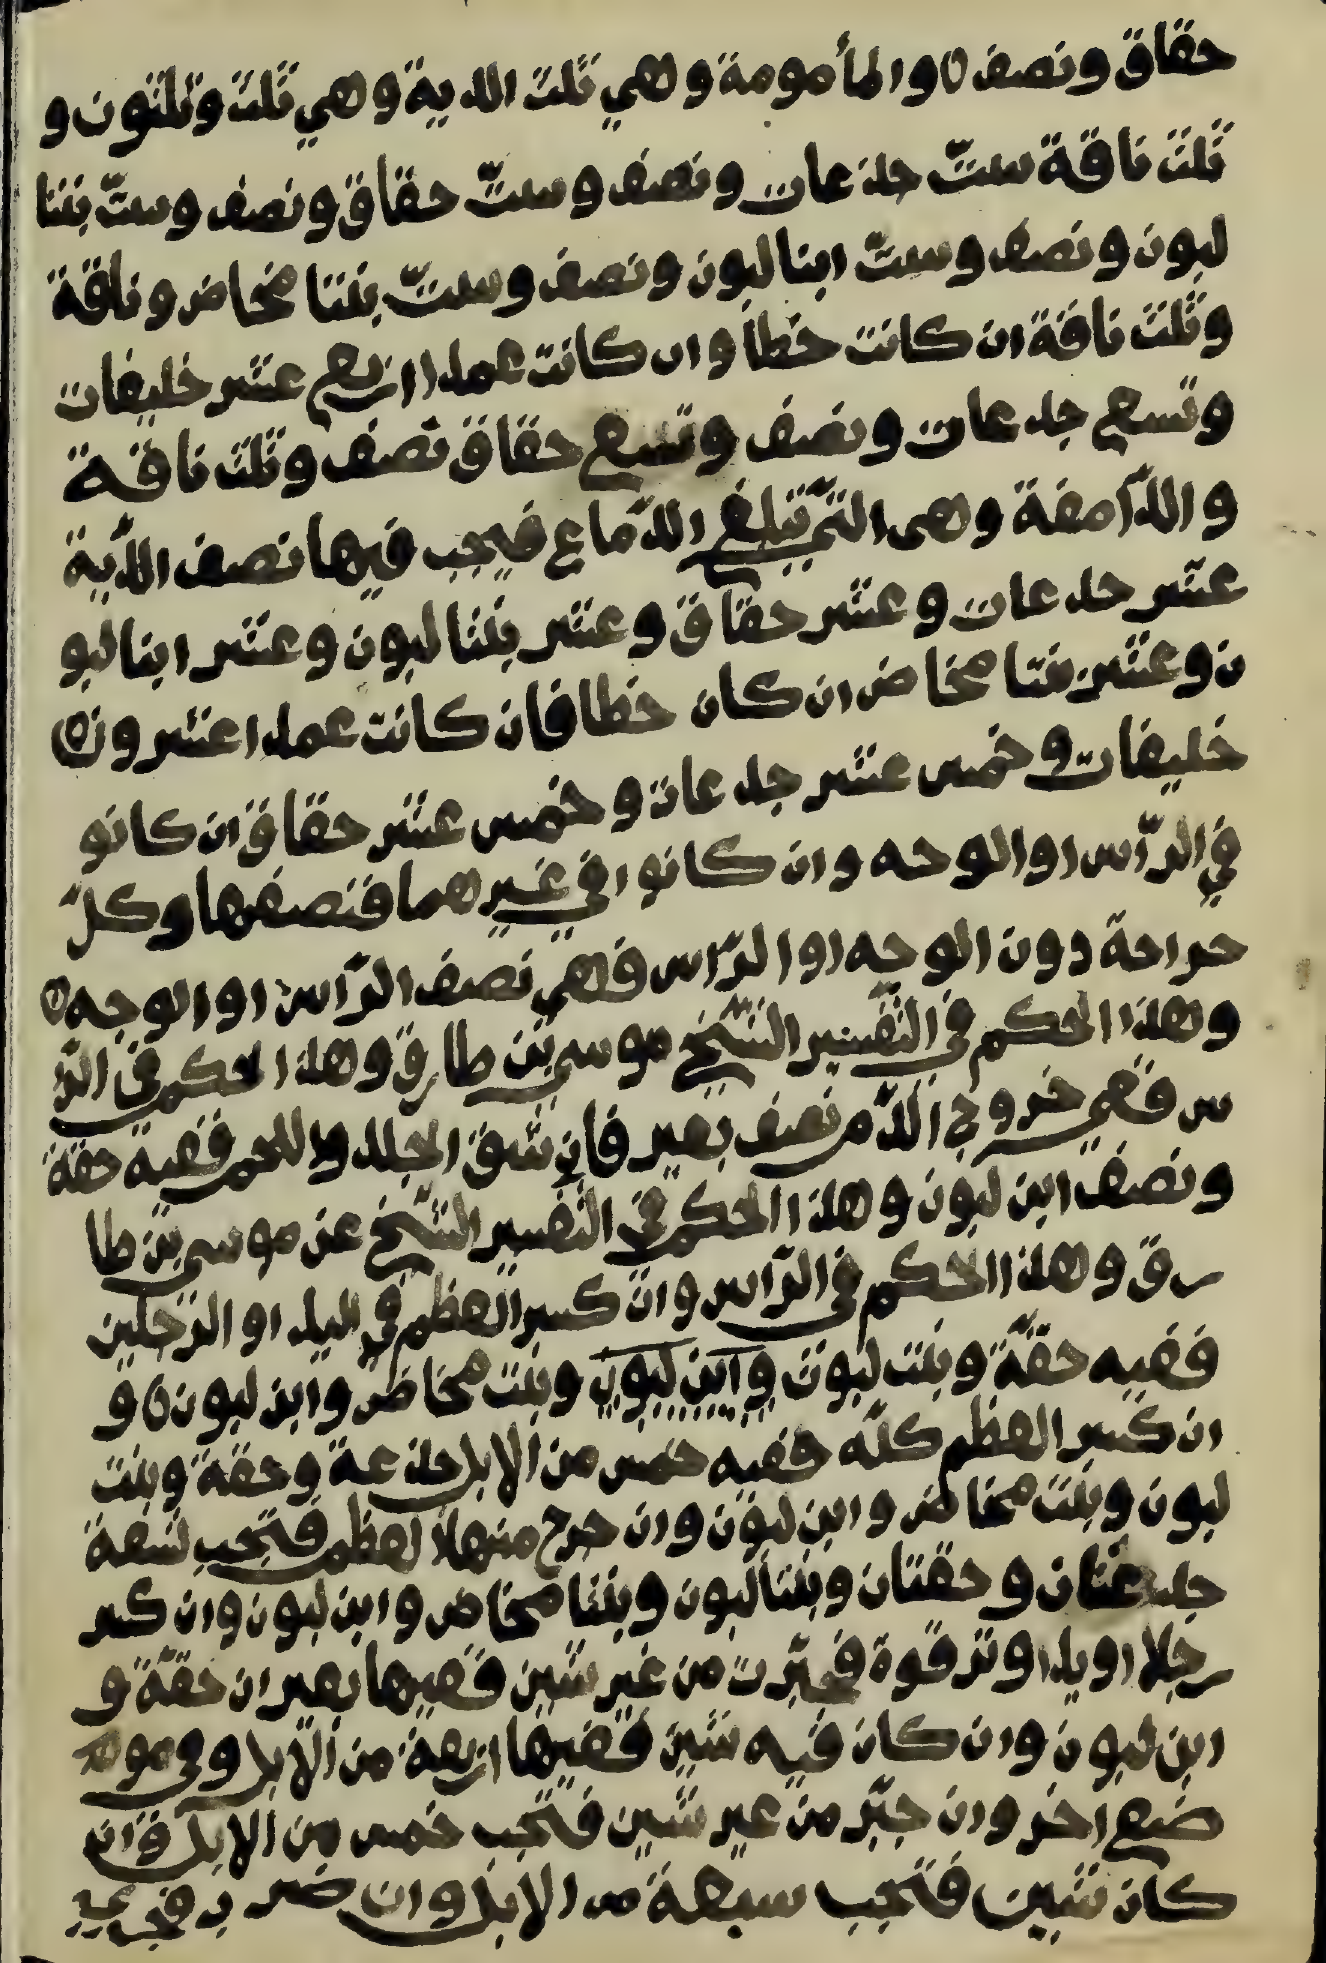 حقاق ونصف ٥ والمأمومة وهي ثلث الدية وهي ثلث وثلثون و
ثلث ناقة ستّ جذعات ونصف وستّ حقاق ونصف وستّ بنتا
لبون ونصف وستّ ابنا لبون ونصف وستّ بنتا مخاض وناقة
وثلث ناقة ان كانت خطأ وان كانت عمدا اربع عشر خليفات
وتسع جدعات ونصف وتسع حقاق نصف وثلث ناقة
والدّآمغة وهي التّي تبلغ الدّماع فيجب فيها نصف الدّية
عشر جدعات وعشر حقاق وعشر بنتا لبون وعشر ابنا لبو
ن وعشر بنتا مخاض ان كان خطا فان كانت عمدا عشرون
خليفات وخمس عشر جدعات وخمس عشر حقاق ان كانو
في الرّأس او الوجه وان كانوا في غيرهما فنصفها وكلّ
جراحة دون الوجه او الرّاس فهي نصف الرّآس او الوجه ٥
وهذا الحكم في التّفسير الشّيخ موسى بن طارق وهذا الحكم في الرّأ
س فهي خروج الدّم نصف بعير فان شق الجلد واللحم ففيه حقة
ونصف ابن لبون وهذا الحكم في التّفسير الشّيخ عن موسى بن طا
رق وهذا الحكم في الرّآس وان كسر العظم في اليد او الرّجلين
ففيه حقّة وبنت لبون وابن لبون وبنت مخاض وابن لبون ٥ و
ان كسر العظم كلّه ففيه خمس من الابل جذعة وحقة وبنت
لبون وبنت مخاض وابن لبون وان خرج منها العظم فتجب تسعة
جدعتان وحقتان وبنتا لبون وبنتا مخاض وابن لبون وان كسر
رجلا او يدا او ترقوة فجبّرت من غير شين ففيها بعيران حقّة و
ابن لبون وان كان فيه شين ففيها اربعة من الابل وفي مو
ضع اخر وان جبّر من غير شين فتجب خمس من الابل وان
كان شين فتجب سبعة من الابل وان ضرب